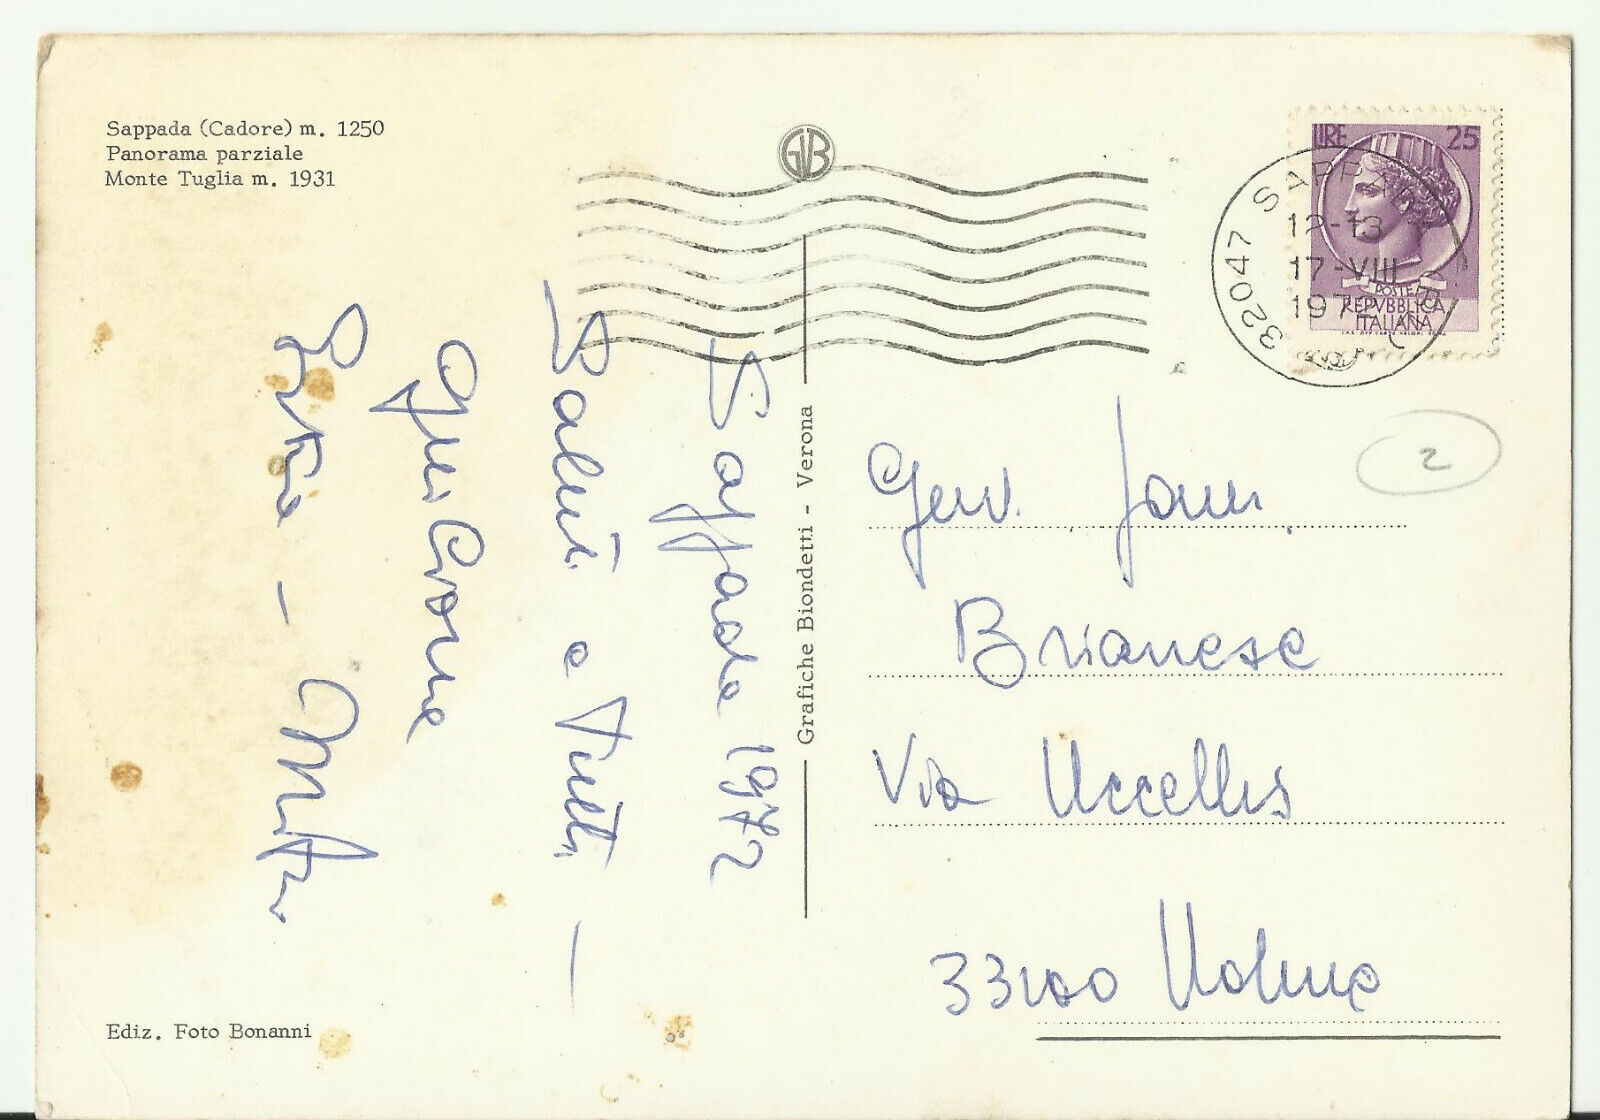 Sappada (Cadore) m. 1250
Panorama parziale
Monte Tuglia m. 1931
GVB
LIRE 25
POSTE
REPVBBLICA
ITALIANA
32047 SAPPADA
12-13
17-VIII
1972
Sappada 1972
Saluti a tutti -
Grafiche Biondetti - Verona
2
Brianese
Via Uccellis
33100 Udine
Ediz. Foto Bonanni